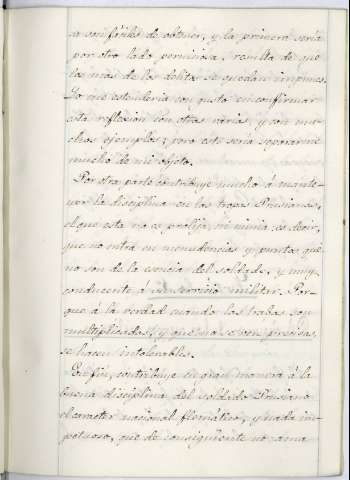 do son fáciles de obtener, y la primera seria
por otro lado perniciosa, resulta de que
las mas de los delitos se quedan impunes.
Yo me estenderia con gusto en confirmar
esta reflexion con otras varias, y con mu-
chos egemplos; pero esto seria separarme
mucho de mi objeto.
Por otra parte contribuye mucho á mante-
ner la disciplina en las tropas Prusianas,
el que esta no es prolija, ni nimia, es decir,
que no entra en menudencias y puntos que
no son de la esencia del soldado, y muy
conducente á su servicio militar. Por-
que á la verdad cuando las trabas son
multiplicadas, y que no son precisas,
se hacen intolerables.
En fin, contribuye en gran manera á la
buena disciplina del soldado Prusiano
el caracter nacional flemático, y nada im-
petuoso, que de consiguiente no ama